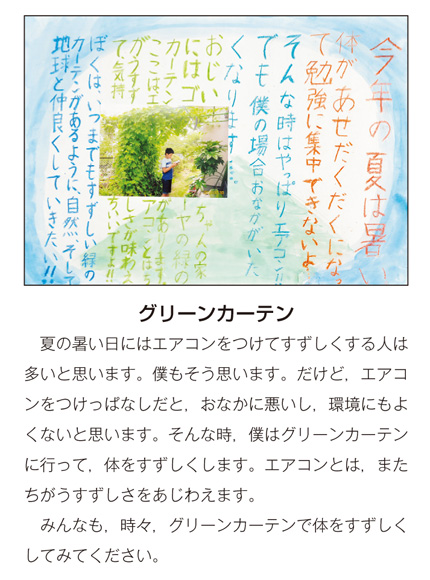 今年の夏は暑い
体があせだくだくになっ
て勉強に集中できないよ
そんな時はやっぱりエアコン!!
でも僕の場合おなかがいた
くなります……
おじいちゃんの家
にはゴーヤの緑の
カーテンがあります。
ここはエアコンとはち
がうすずしさが味わえ
て気持ちいいですよ!!
ぼくは、いつまでもすずしい緑の
カーテンがあるように、自然そして
地球と仲良くしていきたい!!
グリーンカーテン
　夏の暑い日にはエアコンをつけてすずしくする人は
多いと思います。僕もそう思います。だけど，エアコ
ンをつけっぱなしだと，おなかに悪いし，環境にもよ
くないと思います。そんな時，僕はグリーンカーテン
に行って，体をすずしくします。エアコンとは，また
ちがうすずしさをあじわえます。
　みんなも，時々，グリーンカーテンで体をすずしく
してみてください。